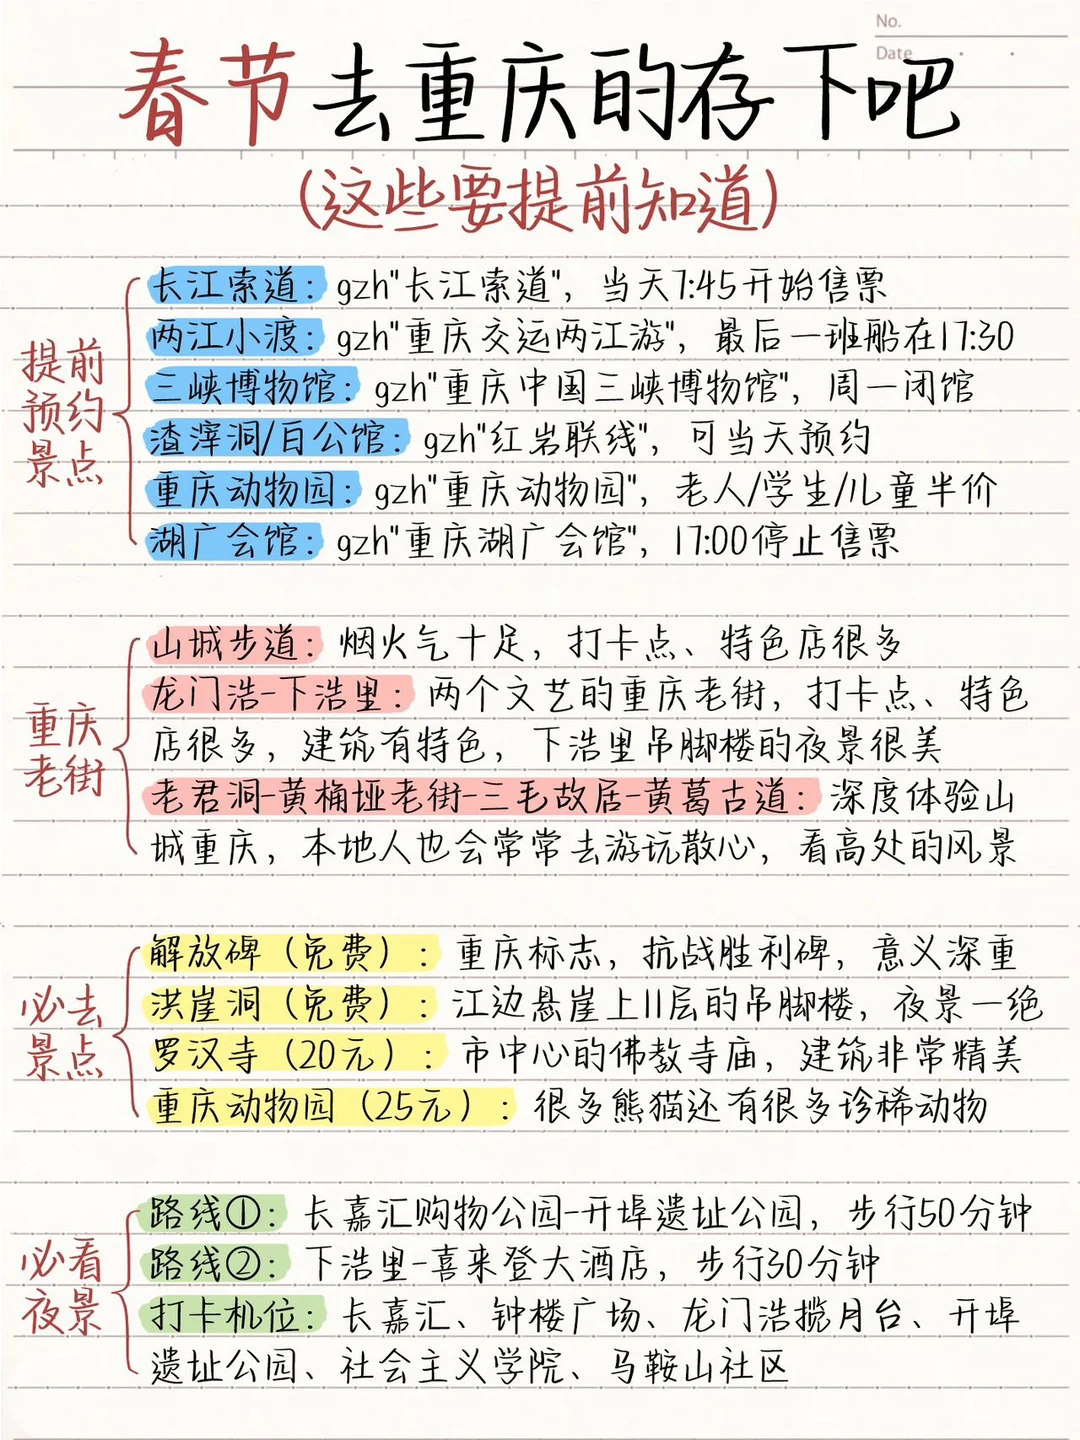 No.
Date
春节去重庆的存下吧
(这些要提前知道)
提前
预约
景点
长江索道：gzh"长江索道"，当天7:45开始售票
两江小渡：gzh"重庆交运两江游"，最后一班船在17:30
三峡博物馆：gzh"重庆中国三峡博物馆"，周一闭馆
渣滓洞/白公馆：gzh"红岩联线"，可当天预约
重庆动物园：gzh"重庆动物园"，老人/学生/儿童半价
湖广会馆：gzh"重庆湖广会馆"，17:00停止售票
重庆
老街
山城步道：烟火气十足，打卡点、特色店很多
龙门浩-下浩里：两个文艺的重庆老街，打卡点、特色
店很多，建筑有特色，下浩里吊脚楼的夜景很美
老君洞-黄桷垭老街-三毛故居-黄葛古道：深度体验山
城重庆，本地人也会常常去游玩散心，看高处的风景
必去
景点
解放碑（免费）：重庆标志，抗战胜利碑，意义深重
洪崖洞（免费）：江边悬崖上11层的吊脚楼，夜景一绝
罗汉寺（20元）：市中心的佛教寺庙，建筑非常精美
重庆动物园（25元）：很多熊猫还有很多珍稀动物
必看
夜景
路线①：长嘉汇购物公园-开埠遗址公园，步行50分钟
路线②：下浩里-喜来登大酒店，步行30分钟
打卡机位：长嘉汇、钟楼广场、龙门浩揽月台、开埠
遗址公园、社会主义学院、马鞍山社区